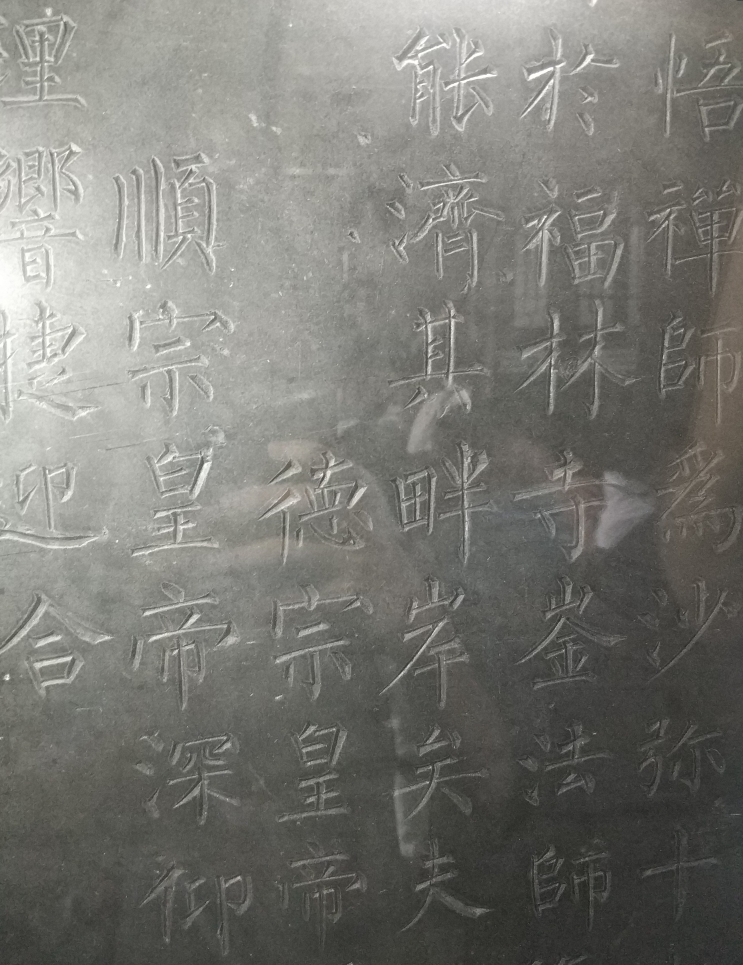 悟禪師為沙弥十
於福林寺崟法師
能濟其畔岸矣夫
德宗皇帝
順宗皇帝深仰
理響捷迎合